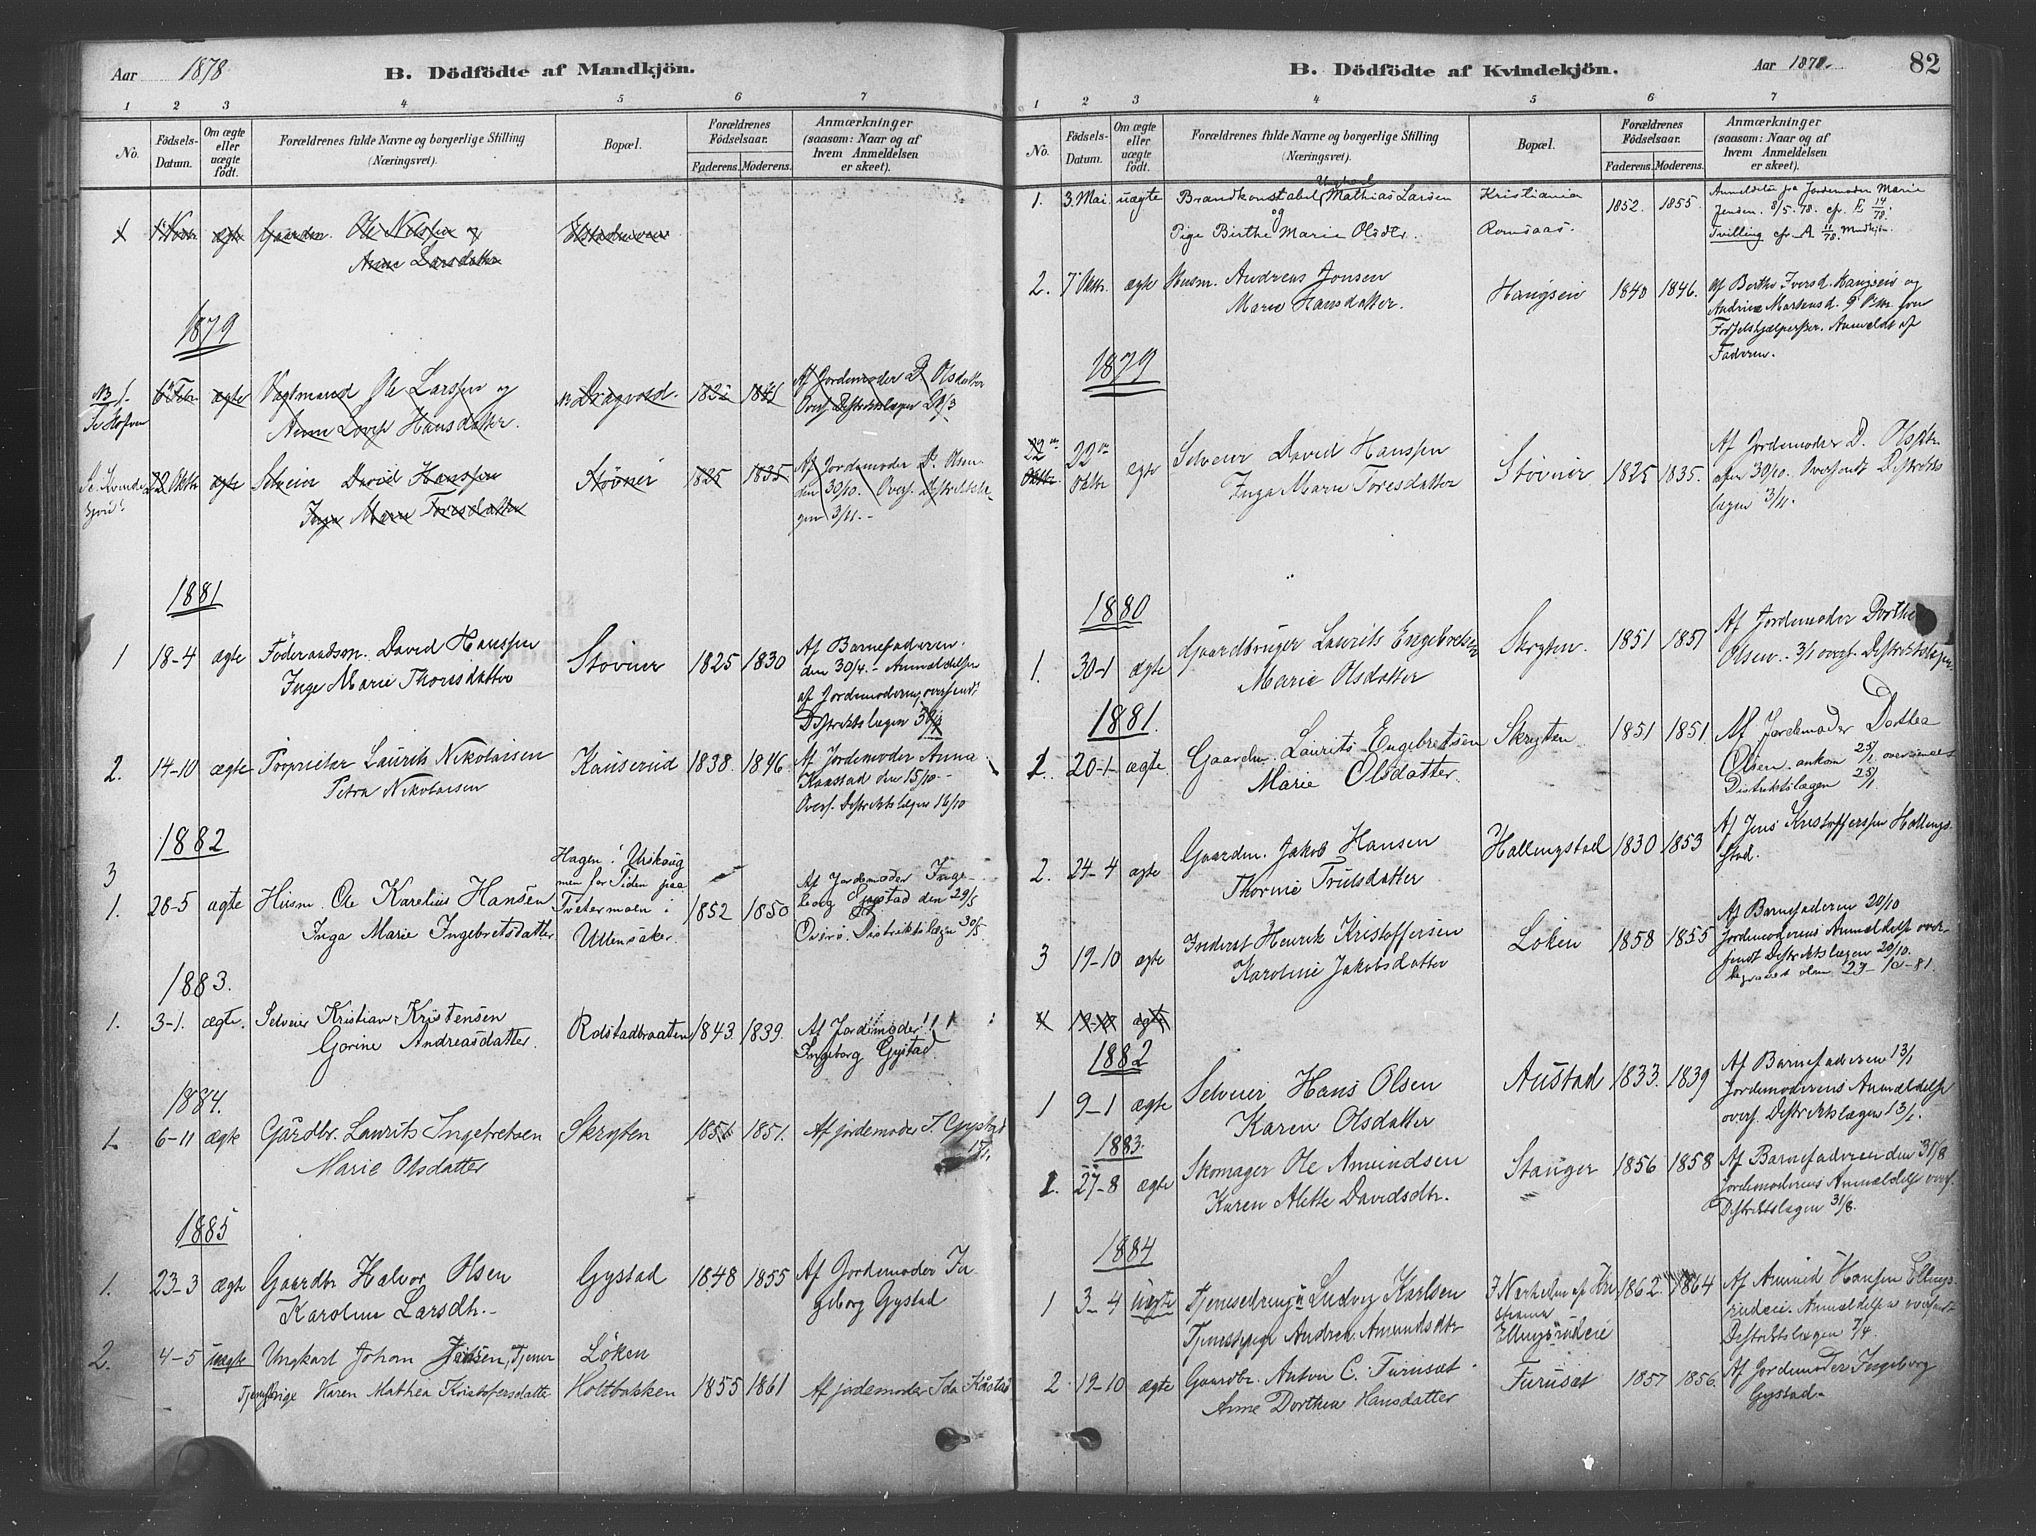 Aar 1878
B. Dödfödte af Mandkjön.
1 2 3 4 5 6 7
No.
Födsels-Datum.
Om ægte eller uægte födt.
Forældrenes fulde Navne og borgerlige Stilling (Næringsvei).
Bopæl.
Forældrenes Födselsaar.
Faderens. Moderens.
Anmærkninger (saasom: Naar og af hvem Anmeldelsen er skeet).
Gaardm. Ole Nilssen og
Anne Larsdatter
1879
6 Febr ægte Vagtmand Ole Larssen og Dragvold. 1841 Af Jordemoder D. Olsdatter
Hansdatter. Overs. Distriktslægen
22 Oktbr ægte Selveier David Hanssen Støvner 1825 1835 Af Jordemoder D. Olsen
Inga Marie Toresdatter den 30/10. Overs. Distriktslægen 3/11. -
1881
1 18-4 ægte Föderaadsm. David Hanssen Støvner 1825 1830 Af Barnefaderen
Inge Marie Thoresdatter den 30/4. - Anmældelsen
af Jordemoderen oversendt
Distriktslægen
2. 14-10 ægte Proprietær Laurits Nikolaisen Kauserud 1838. 1846. Af Jordemoder Anna
Petra Nikolaisen Kaastad den 15/10 -
Overs. Distriktslægen 16/10
1882
3
1. 28-5 ægte Husm. Ole Karelius Hansen Hagen i Urskoug
men for Tiden paa
Tvetermoen i
Ullensaker. 1852 1850 Af Jordemoder Inge-
borg Gystad den 29/5
Inga Marie Ingebretsdatter Distriktslægen 30/5.
1883.
1. 3-1. ægte. Selveier Kristian Kristensen Rolstadbraaten 1843. 1839. Af Jordemoder
Gorine Andreasdatter. Ingeborg Gystad.
1884.
1. 6-11 ægte Gårdbr. Laurits Ingebretsen Skryten 1851 1851. Af jordemoder I. Gystad
Marie Olsdatter
1885
1. 23-3 ægte Gaardbr Halvor Olsen Gystad 1848 1855 Af Jordemoder In-
Karoline Larsdtr. geborg Gystad
2. 4-5 uægte Ungkarl Johan Jensen, Tjener Løken
Tjenestpige Karen Mathea Kristofersdatter Holtbakken 1855 1861 Af jordemoder Ida Kåstad
B. Dödfödte af Kvindekjön.
Aar 1878. 82
1 2 3 4 5 6 7
No.
Födsels-Datum.
Om ægte eller uægte födt.
Forældrenes fulde Navne og borgerlige Stilling (Næringsvei).
Bopæl.
Forældrenes Födselsaar.
Faderens. Moderens.
Anmærkninger (saasom: Naar og af hvem Anmeldelsen er skeet).
1. 3. Mai. uægte Brandkonstabel Ungkarl Mathias Larsen Kristiania 1852. 1855. Anmeldelse fra Jordemoder Marie
og Jensen. 8/5. 78. cfr. E 14/78.
Pige Birthe Marie Olsdtr. Romsaas. Tvilling cfr A 11/78. Mandkjön.
2. 7 Oktbr. ægte Husm. Andreas Jonsen Haugseie 1840 1846. af Berthe Iversd. Haugseie og
Marie Hansdatter. Andrine Martensd.
Fødselshjælpersker. Anmeldt af
Faderen.
1879
22 Oktbr ægte Selveier David Hanssen Støvner 1825 1835. Af Jordemoder D. Olsdtr.
Inga Marie Toresdatter 30/10. Oversendt Distrikts
lægen 3/11.
1880
1. 30-1 ægte Gaardbruger Laurits Engebretsen Skryten. 1851 1851 Af Jordemoder Dorthe
Marie Olsdatter Olsen. overs. Distriktslægen
1881.
1. 20-1- ægte. Gaardm. Laurits Engebretsen Skryten 1851 1851. Af Jordemoder Dorthea
Marie Olsdatter. Olsen. ankom 25/1 oversendt
Distriktslægen 25/1.
2. 24-4 ægte Gaardm. Jakob Hansen Hallingstad 1830 1853 Af Jens Kristofferssen Hallings-
Thorine Trulsdatter stad.
3 19-10 ægte Inderst Henrik Kristoffersen Løken 1858 1855 Af Barnefaderen 20/10
Karoline Jakobsdatter Jordemoderens Anmældelse over-
sendt Distriktslægen 20/10.
Begravet den 23-10-81.
4 19-10 ægte
1882
1 9-1 ægte Selveier Hans Olsen Austad 1833. 1839 Af Barnefaderen 13/1
Karen Olsdatter Jordemoderens Anmældelse
overs. Distriktslægen 13/1.
1883.
1. 27-8 ægte Skomager Ole Amundsen Stanger 1856 1858 Af Barnefaderen den 31/8
Karen Alette Davidsdtr. Jordemoderens Anmældelse overs.
Distriktslægen 31/8.
1884
1 3-4 uægte Tjenestedreng Ludvig Karlsen 1862. 1864 Af Amund Hansen Ellings-
Tjenestepige Andrea Amundsdtr Ellingsrudeie rudeie. Anmældelse oversendt
Distriktslægen 7/4.
2 19-10 ægte Gaardbr. Anton C. Furuset. Furuset 1857 1856. Af Jordemoder Ingeborg
Anne Dorthea Hansdatter Gystad.